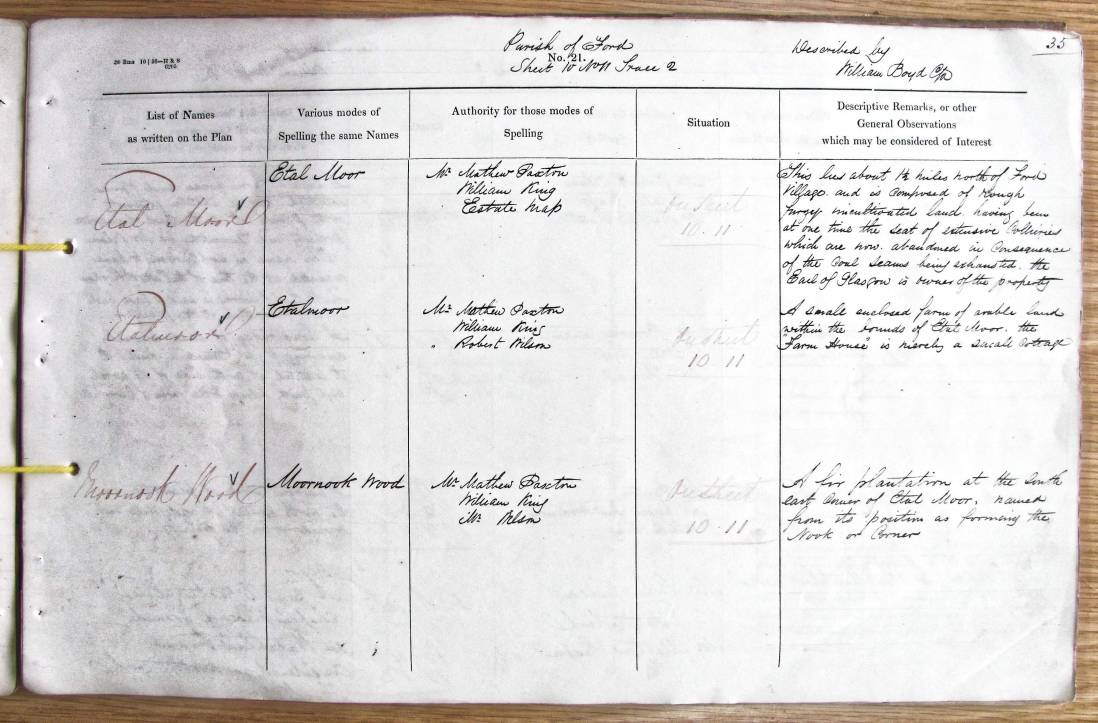 35
Parish of Ford
No. 21.
Sheet 10 No 11 Trace 2
Described by
William Boyd C/a
List of Names
as written on the Plan
Various modes of
Spelling the same Names
Authority for those modes of
Spelling
Situation
Descriptive Remarks, or other
General Observations
which may be considered of Interest
Etal Moor
Etal Moor
Mr. Mathew Paxton
William King
Estate Map
On Sheet
10 . 11
This lies about 1½ miles north of Ford
Village. and is composed of Rough
furzy uncultivated land. having been
at one time the seat of extensive Collieries
which are now. abandoned in Consequence
of the Coal Seams being exhausted. the
Earl of Glasgow is owner of the property
Etalmoor
Etalmoor
Mr. Mathew Paxton
William King
" Robert Wilson
On Sheet
10 11
A small enclosed farm of arable land
within the bounds of Etal Moor. the
"Farm House" is merely a small Cottage
Moornook Wood
Moornook Wood
Mr. Mathew Paxton
William King
Mr. Wilson
On Sheet
10 . 11
A fir plantation at the South
east Corner of Etal Moor. named
from its position as forming the
Nook or Corner